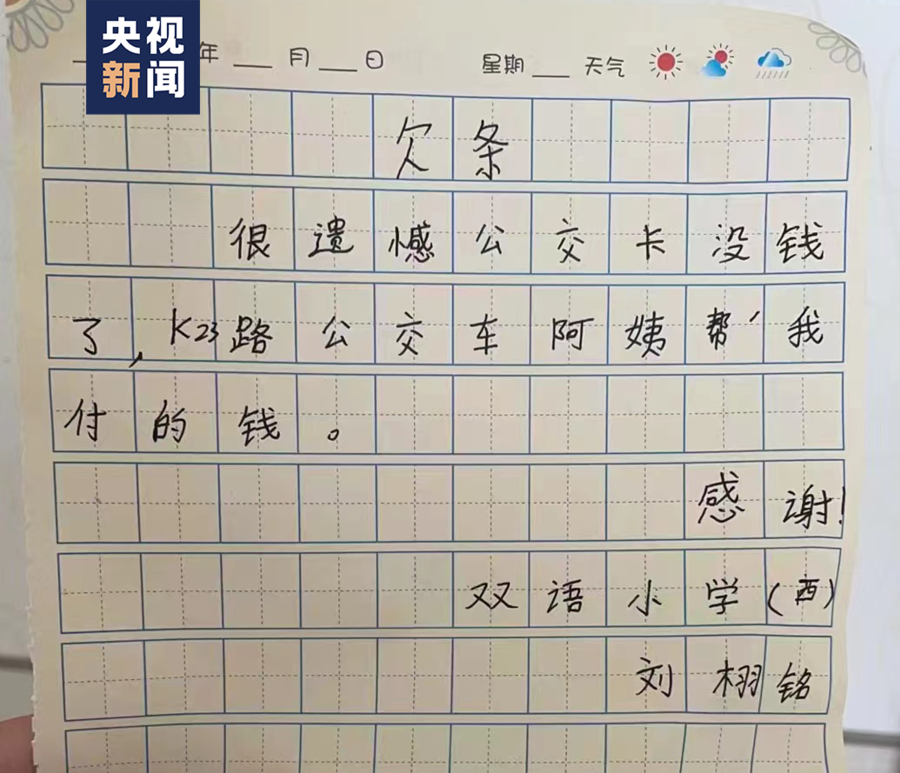 央视
新闻
年 ___ 月 ___ 日 星期 ___ 天气
欠条
很遗憾公交卡没钱
了，K23路公交车阿姨帮我
付的钱。
感谢！
双语小学（西）
刘栩铭